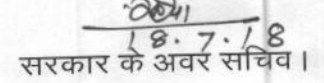 18.7.18
सरकार के अवर सचिव।